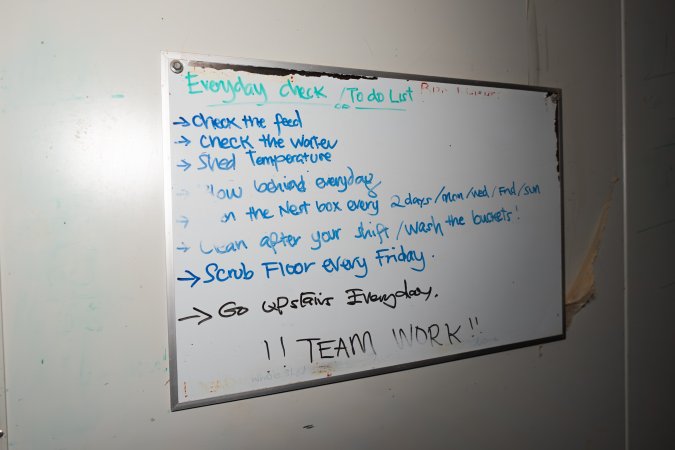 Everyday check / To do List
→ Check the feed
→ Check the water
→ Shed Temperature
behind everyday
→ on the Nest box every 2 days / mon / wed / Frid / sun
→ Clean after your shift / Wash the buckets!
→ Scrub Floor every Friday.
→ Go upstairs Everyday.
!! TEAM WORK !!